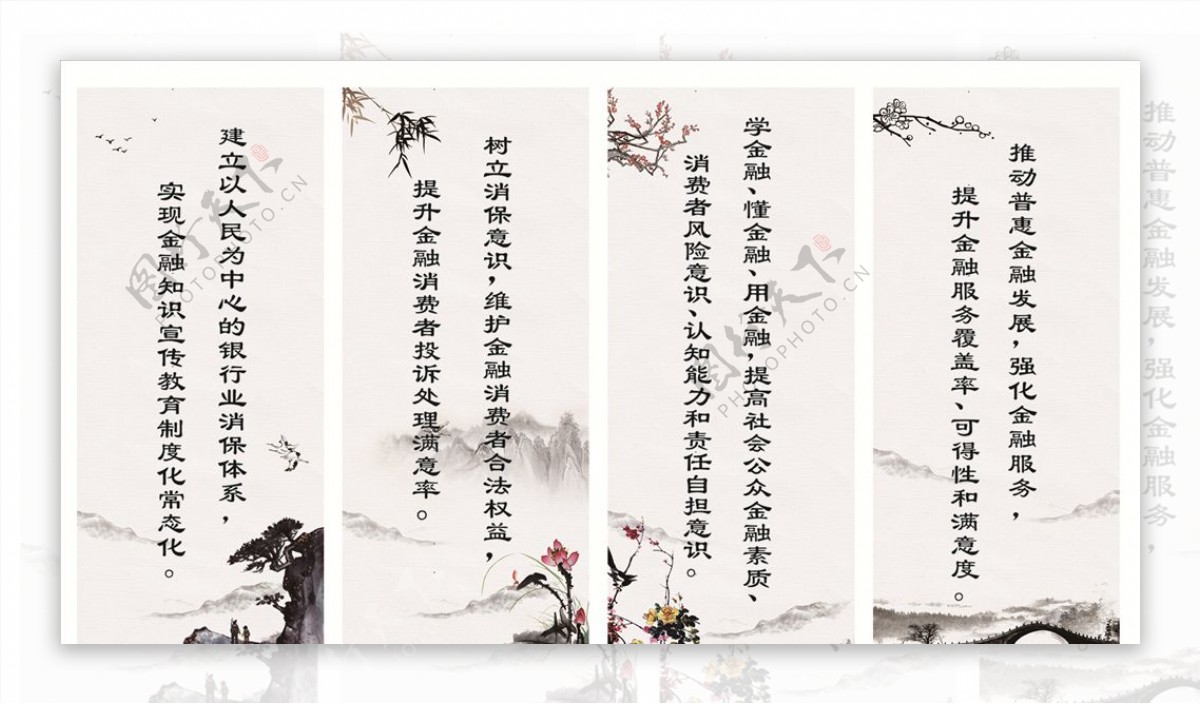 建立以人民为中心的银行业消保体系，
实现金融知识宣传教育制度化常态化。
树立消保意识，维护金融消费者合法权益，
提升金融消费者投诉处理满意率。
学金融、懂金融、用金融，提高社会公众金融素质、
消费者风险意识、认知能力和责任自担意识。
推动普惠金融发展，强化金融服务，
提升金融服务覆盖率、可得性和满意度。
推动普惠金融发展，强化金融服务，
图行天下
PHOTOPHOTO.CN
图行天下
PHOTOPHOTO.CN